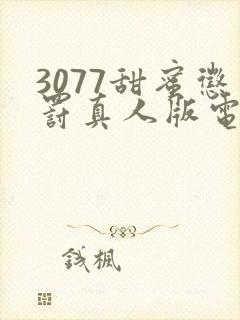 3077甜蜜懲
罰真人版電
錢楓